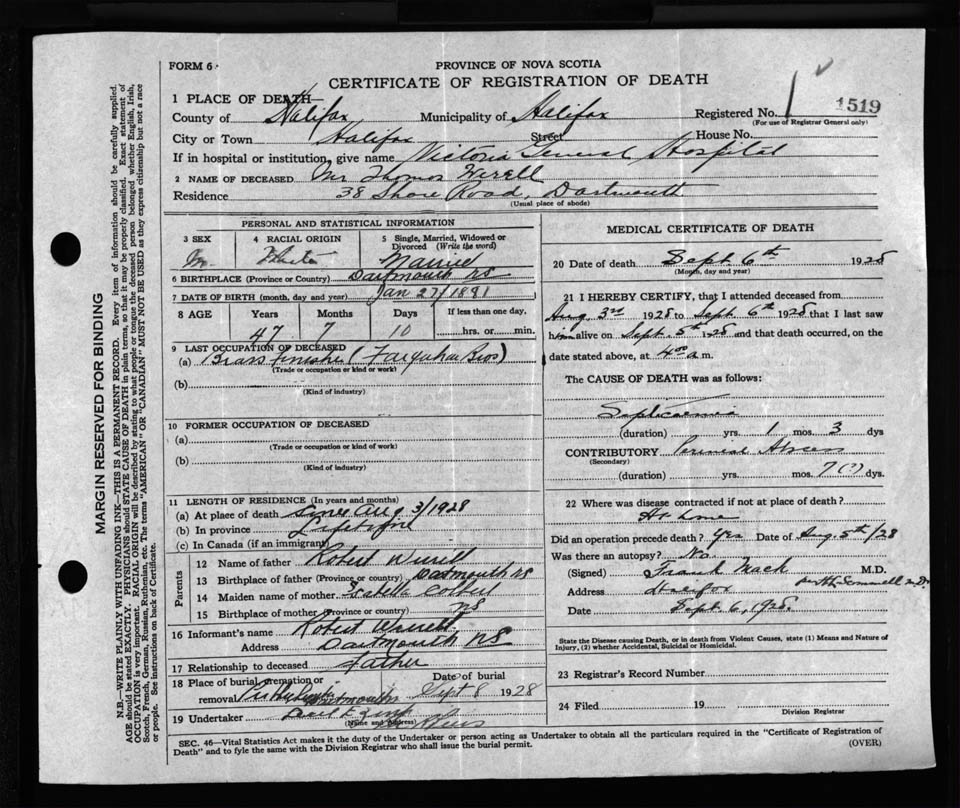 FORM 6.
PROVINCE OF NOVA SCOTIA
CERTIFICATE OF REGISTRATION OF DEATH
1519
1 PLACE OF DEATH—
County of Halifax Municipality of Halifax Registered No. 1
(For use of Registrar General only)
City or Town Halifax Street House No.
If in hospital or institution, give name Victoria General Hospital
2 NAME OF DECEASED Mr Thomas Wirell
Residence 38 Shore Road, Dartmouth
(Usual place of abode)
PERSONAL AND STATISTICAL INFORMATION
3 SEX 4 RACIAL ORIGIN 5 Single, Married, Widowed or
Divorced (Write the word)
M. Married
6 BIRTHPLACE (Province or Country) Dartmouth NS
7 DATE OF BIRTH (month, day and year) Jan 27/1881
8 AGE Years Months Days If less than one day,
47 7 10 hrs. or min.
9 LAST OCCUPATION OF DECEASED
(a) Brass Finisher (Farquhar Bros)
(Trade or occupation or kind or work)
(b)
(Kind of industry)
10 FORMER OCCUPATION OF DECEASED
(a)
(Trade or occupation or kind of work)
(b)
(Kind of industry)
11 LENGTH OF RESIDENCE (In years and months)
(a) At place of death since Aug 3/1928
(b) In province Lifetime
(c) In Canada (if an immigrant)
Parents
12 Name of father Robert Wirell
13 Birthplace of father (Province or country) Dartmouth NS
14 Maiden name of mother Isabella
15 Birthplace of mother (Province or country) NS
16 Informant's name Robert Wirell
Address Dartmouth NS
17 Relationship to deceased father
18 Place of burial, cremation or Date of burial
removal Dartmouth Sept 8 1928
19 Undertaker
(Name and address)
MEDICAL CERTIFICATE OF DEATH
20 Date of death Sept. 6th 1928
(Month, day and year)
21 I HEREBY CERTIFY, that I attended deceased from
Aug 3rd 1928 to Sept. 6th 1928 that I last saw
him alive on Sept. 5th 1928 and that death occurred, on the
date stated above, at 4 00 a m.
The CAUSE OF DEATH was as follows:
Septicaemia
(duration) yrs. 1 mos. 3 dys
CONTRIBUTORY Perineal Abscess
(Secondary)
(duration) yrs. mos. 7 (?) dys.
22 Where was disease contracted if not at place of death?
At home
Did an operation precede death? Yes Date of Aug. 5th/28
Was there an autopsy? No.
(Signed) Frank Mack M.D.
Address Halifax
Date Sept. 6, 1928.
State the Disease causing Death, or in death from Violent Causes, state (1) Means and Nature of
Injury, (2) whether Accidental, Suicidal or Homicidal.
23 Registrar's Record Number
24 Filed 19
Division Registrar
SEC. 46—Vital Statistics Act makes it the duty of the Undertaker or person acting as Undertaker to obtain all the particulars required in the "Certificate of Registration of
Death" and to fyle the same with the Division Registrar who shall issue the burial permit. (OVER)
MARGIN RESERVED FOR BINDING
N.B.—WRITE PLAINLY WITH UNFADING INK—THIS IS A PERMANENT RECORD. Every item of information should be carefully supplied.
AGE should be stated EXACTLY. PHYSICIANS should STATE CAUSE OF DEATH in plain terms, so that it may be properly classified. Exact statement of
OCCUPATION is very important. RACIAL ORIGIN will be described by stating to what people or tongue the deceased person belonged whether English, Irish,
Scotch, French, German, Russian, Ruthenian, etc. The terms "AMERICAN" OR "CANADIAN" MUST NOT BE USED as they express citizenship but not a race
or people. See instructions on back of Certificate.